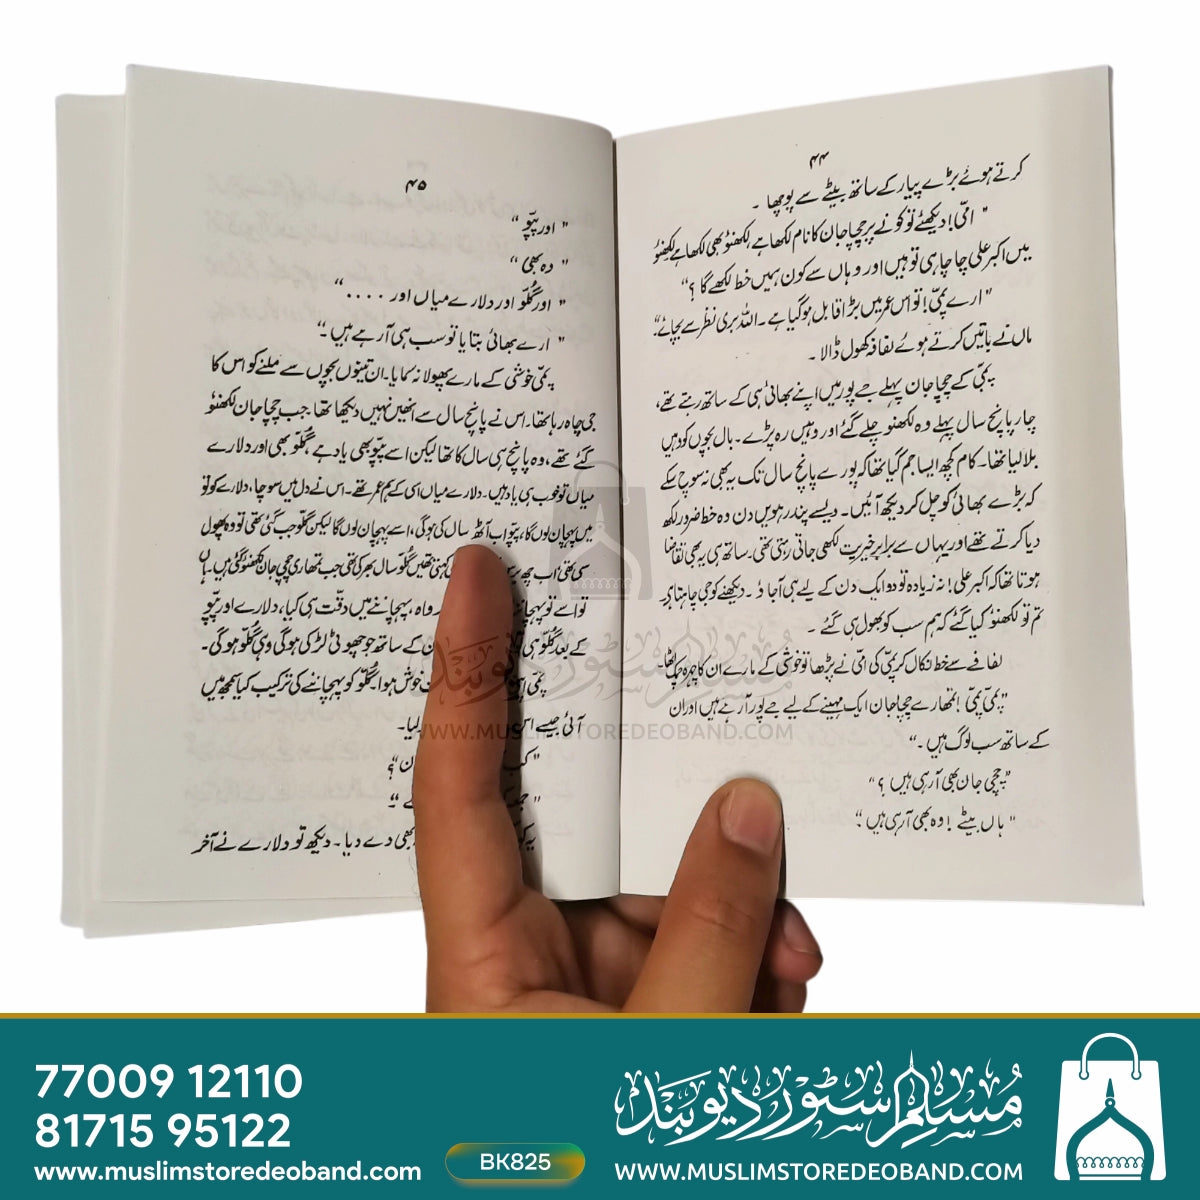 ۴۴
کرتے ہوئے بڑے پیار کے ساتھ بیٹے سے پوچھا ۔
" امّی! دیکھئے تو کونے پر چچا جان کا نام لکھا ہے لکھنؤ بھی لکھا ہے لکھنؤ
میں اکبر علی چاچا ہی تو ہیں اور وہاں سے کون ہمیں خط لکھے گا ؟"
"ارے پمّی! تو اس عمر میں بڑا قابل ہو گیا ہے ۔ اللہ بری نظر سے بچائے"
ماں نے باتیں کرتے ہوئے لفافہ کھول ڈالا ۔
پمّی کے چچا جان پہلے جے پور میں اپنے بھائی ہی کے ساتھ رہتے تھے،
چار پانچ سال پہلے وہ لکھنؤ چلے گئے اور وہیں رہ پڑے ۔ بال بچوں کو وہیں
بلا لیا تھا۔ کام کچھ ایسا جم گیا تھا کہ پورے پانچ سال تک یہ بھی نہ سوچ سکے
کہ بڑے بھائی کو چل کر دیکھ آئیں۔ ویسے پندرہویں دن وہ خط ضرور لکھ
دیا کرتے تھے اور یہاں سے برابر خیریت لکھی جاتی رہتی تھی۔ ساتھ ہی یہ بھی تقاضا
ہوتا تھا کہ اکبر علی! نہ زیادہ تو دو ایک دن کے لیے ہی آجاؤ ۔ دیکھنے کو جی چاہتا ہے۔
تم تو لکھنؤ کیا گئے کہ ہم سب کو بھول ہی گئے ۔
لفافے سے خط نکال کر پمّی کی امّی نے پڑھا تو خوشی کے مارے ان کا چہرہ چمک اٹھا۔
"پمّی پمّی! تمہارے چچا جان ایک مہینے کے لیے جے پور آرہے ہیں اور ان
کے ساتھ سب لوگ ہیں ۔"
"چچی جان بھی آرہی ہیں ؟"
"ہاں بیٹے! وہ بھی آرہی ہیں"
۴۵
" اور پپّو "
" وہ بھی "
" اور گلّو اور دلارے میاں اور ۔۔۔۔ "
" ارے بھائی بتایا تو سب ہی آرہے ہیں "
پمّی خوشی کے مارے پھولا نہ سمایا۔ ان تینوں بچوں سے ملنے کو اس کا
جی چاہ رہا تھا۔ اس نے پانچ سال سے انہیں نہیں دیکھا تھا۔ جب چچا جان لکھنؤ
گئے تھے، وہ پانچ ہی سال کا تھا لیکن اسے پپّو بھی یاد ہے، گلّو بھی اور دلارے
میاں تو خوب ہی یاد ہیں۔ دلارے میاں اسی کے ہم عمر تھے۔ اس نے دل میں سوچا، دلارے کو تو
میں پہچان لوں گا، پپّو اب آٹھ سال کی ہوگی، اسے پہچان لوں گا لیکن گلّو جب گئی تھی تو وہ پھول
سی تھی اب چھ کہتی تھیں گلّو سال بھر کی تھی جب تمہاری چچی جان لکھنؤ گئی ہیں۔ ہاں
تو اسے تو پہچا واہ، پہچاننے میں دقّت ہی کیا، دلارے اور پپّو
کے بعد گلّو ہی ن کے ساتھ جو چھوٹی لڑکی ہوگی وہی گلّو ہوگی۔
پمّی خوش ہوا۔ گلّو کو پہچاننے کی ترکیب کیا سمجھ میں
آئی جیسے اس لیا۔
" کب ن ؟
بھی دے دیا۔ دیکھ تو دلارے نے آخر
مسلم سٹور دیوبند
WWW.MUSLIMSTOREDEOBAND.COM
77009 12110
81715 95122
www.muslimstoredeoband.com
BK825
مسلم سٹور دیوبند
WWW.MUSLIMSTOREDEOBAND.COM